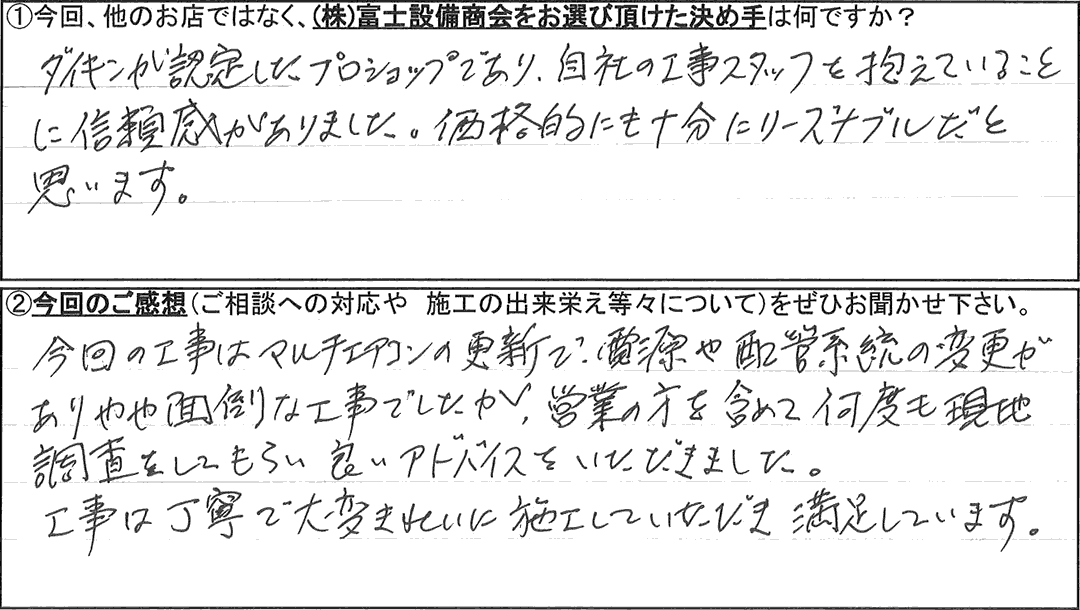 ①今回、他のお店ではなく、(株)富士設備商会をお選び頂けた決め手は何ですか？
ダイキンが認定したプロショップであり、自社の工事スタッフを抱えていること
に信頼感がありました。価格的にも十分にリーズナブルだと
思います。
②今回のご感想(ご相談への対応や 施工の出来栄え等々について)をぜひお聞かせ下さい。
今回の工事はマルチエアコンの更新で、電源や配管系統の変更が
ありやや面倒な工事でしたが、営業の方を含めて何度も現地
調査をしてもらい良いアドバイスをいただきました。
工事は丁寧で大変きれいに施工していただき満足しています。